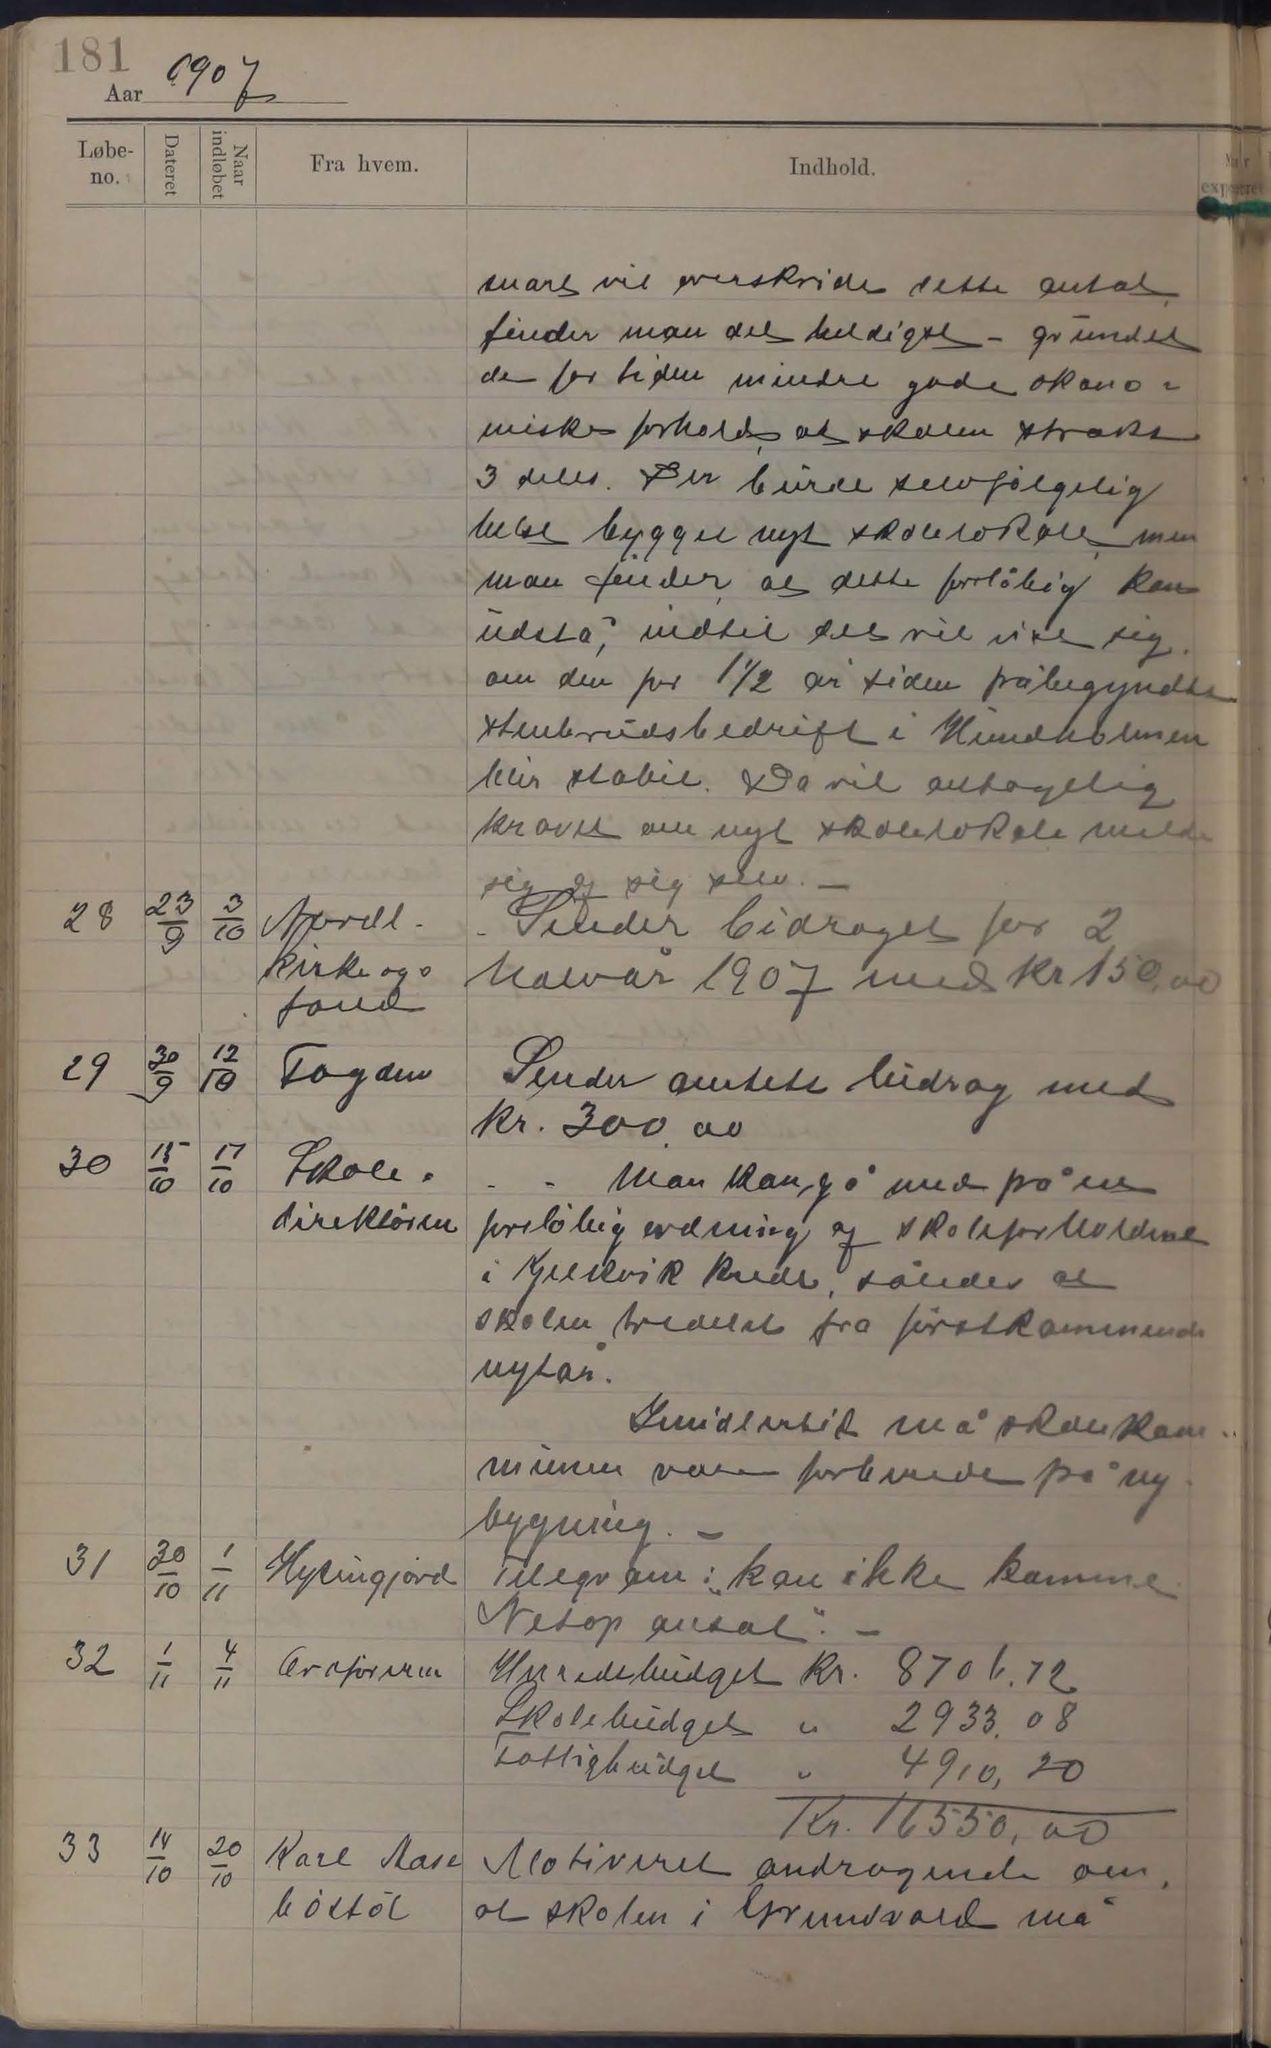 181
Aar 1907
Løbe-
no.
Dateret
Naar
indløbet
Fra hvem.
Indhold.
snart vil overskride dette antal,
finder man det heldigst - grundet
de for tiden mindre gode økono-
miske forhold, at skolen straks
3 deles. Der burde selvfølgelig
helst bygget nyt skolelokale, men
man finder at dette forløbig kan
udstå, indtil det vil vise sig
om den for 1 1/2 år siden påbegyndte
stenbrudsbedrift i Hundholmen
blir stabil. Da vil antagelig
kravet om nyt skolelokale melde
sig af sig selv. -
28 23/9 3/10 Nordl. - Sender bidraget for 2
kirke og halvår 1907 med Kr 150,00
fond
29 30/9 12/10 Fogden Sender amtets bidrag med
kr. 300,00
30 15/10 17/10 Skole- - - Man kan gå med på en
direktøren forløbig ordning af skoleforholdene
i Kjelkvik kreds, således at
skolen tredeles fra førstkommende
nytår.
Imidlertid må skolekom-
munen være forberedt på ny
bygning. -
31 30/10 1/11 Hyllingjord Telegram: "kan ikke komme
Netop antal". -
32 1/11 4/11 Ordføreren Herredsbudget Kr. 8706.72
Skolebudget " 2933.08
Fattigbudget " 4910,20
Kr. 16550,00
33 14/10 20/10 Karl Motiveret andragende om,
at skolen i Grundvold må